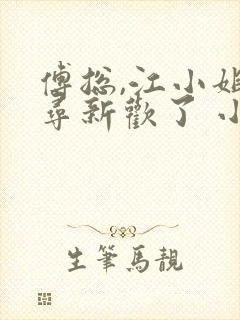 傅总,江小姐
寻新歡了 小
生筆馬靚